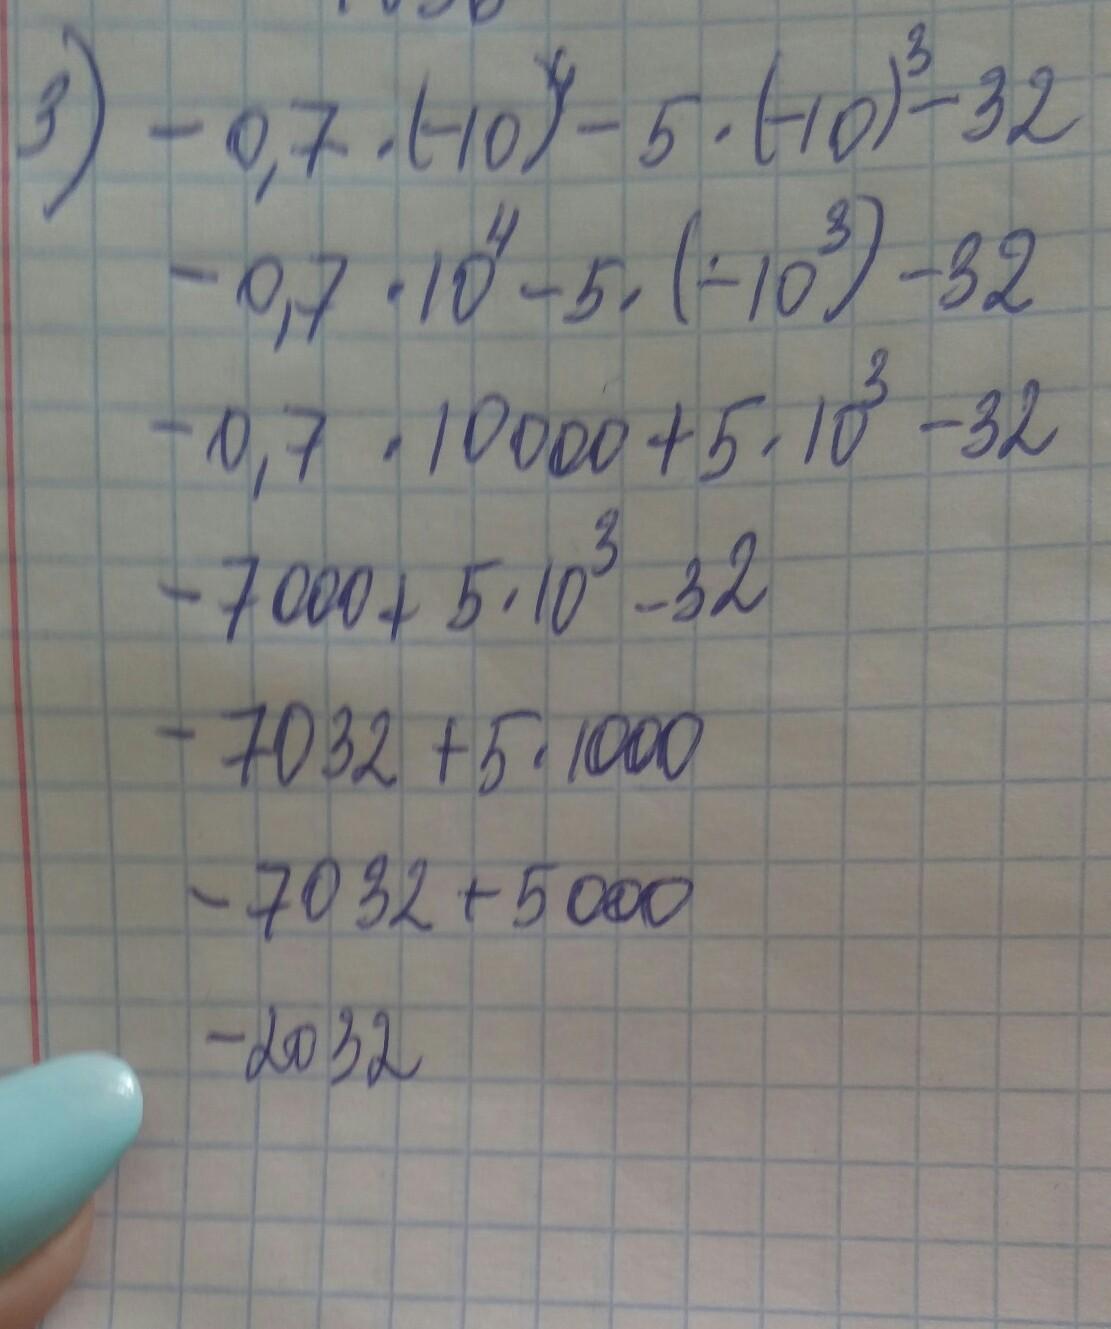 3) -0,7 · (-10)⁴ - 5 · (-10)³ - 32
-0,7 · 10⁴ - 5 · (-10³) - 32
-0,7 · 10000 + 5 · 10³ - 32
-7000 + 5 · 10³ - 32
-7032 + 5 · 1000
-7032 + 5000
-2032